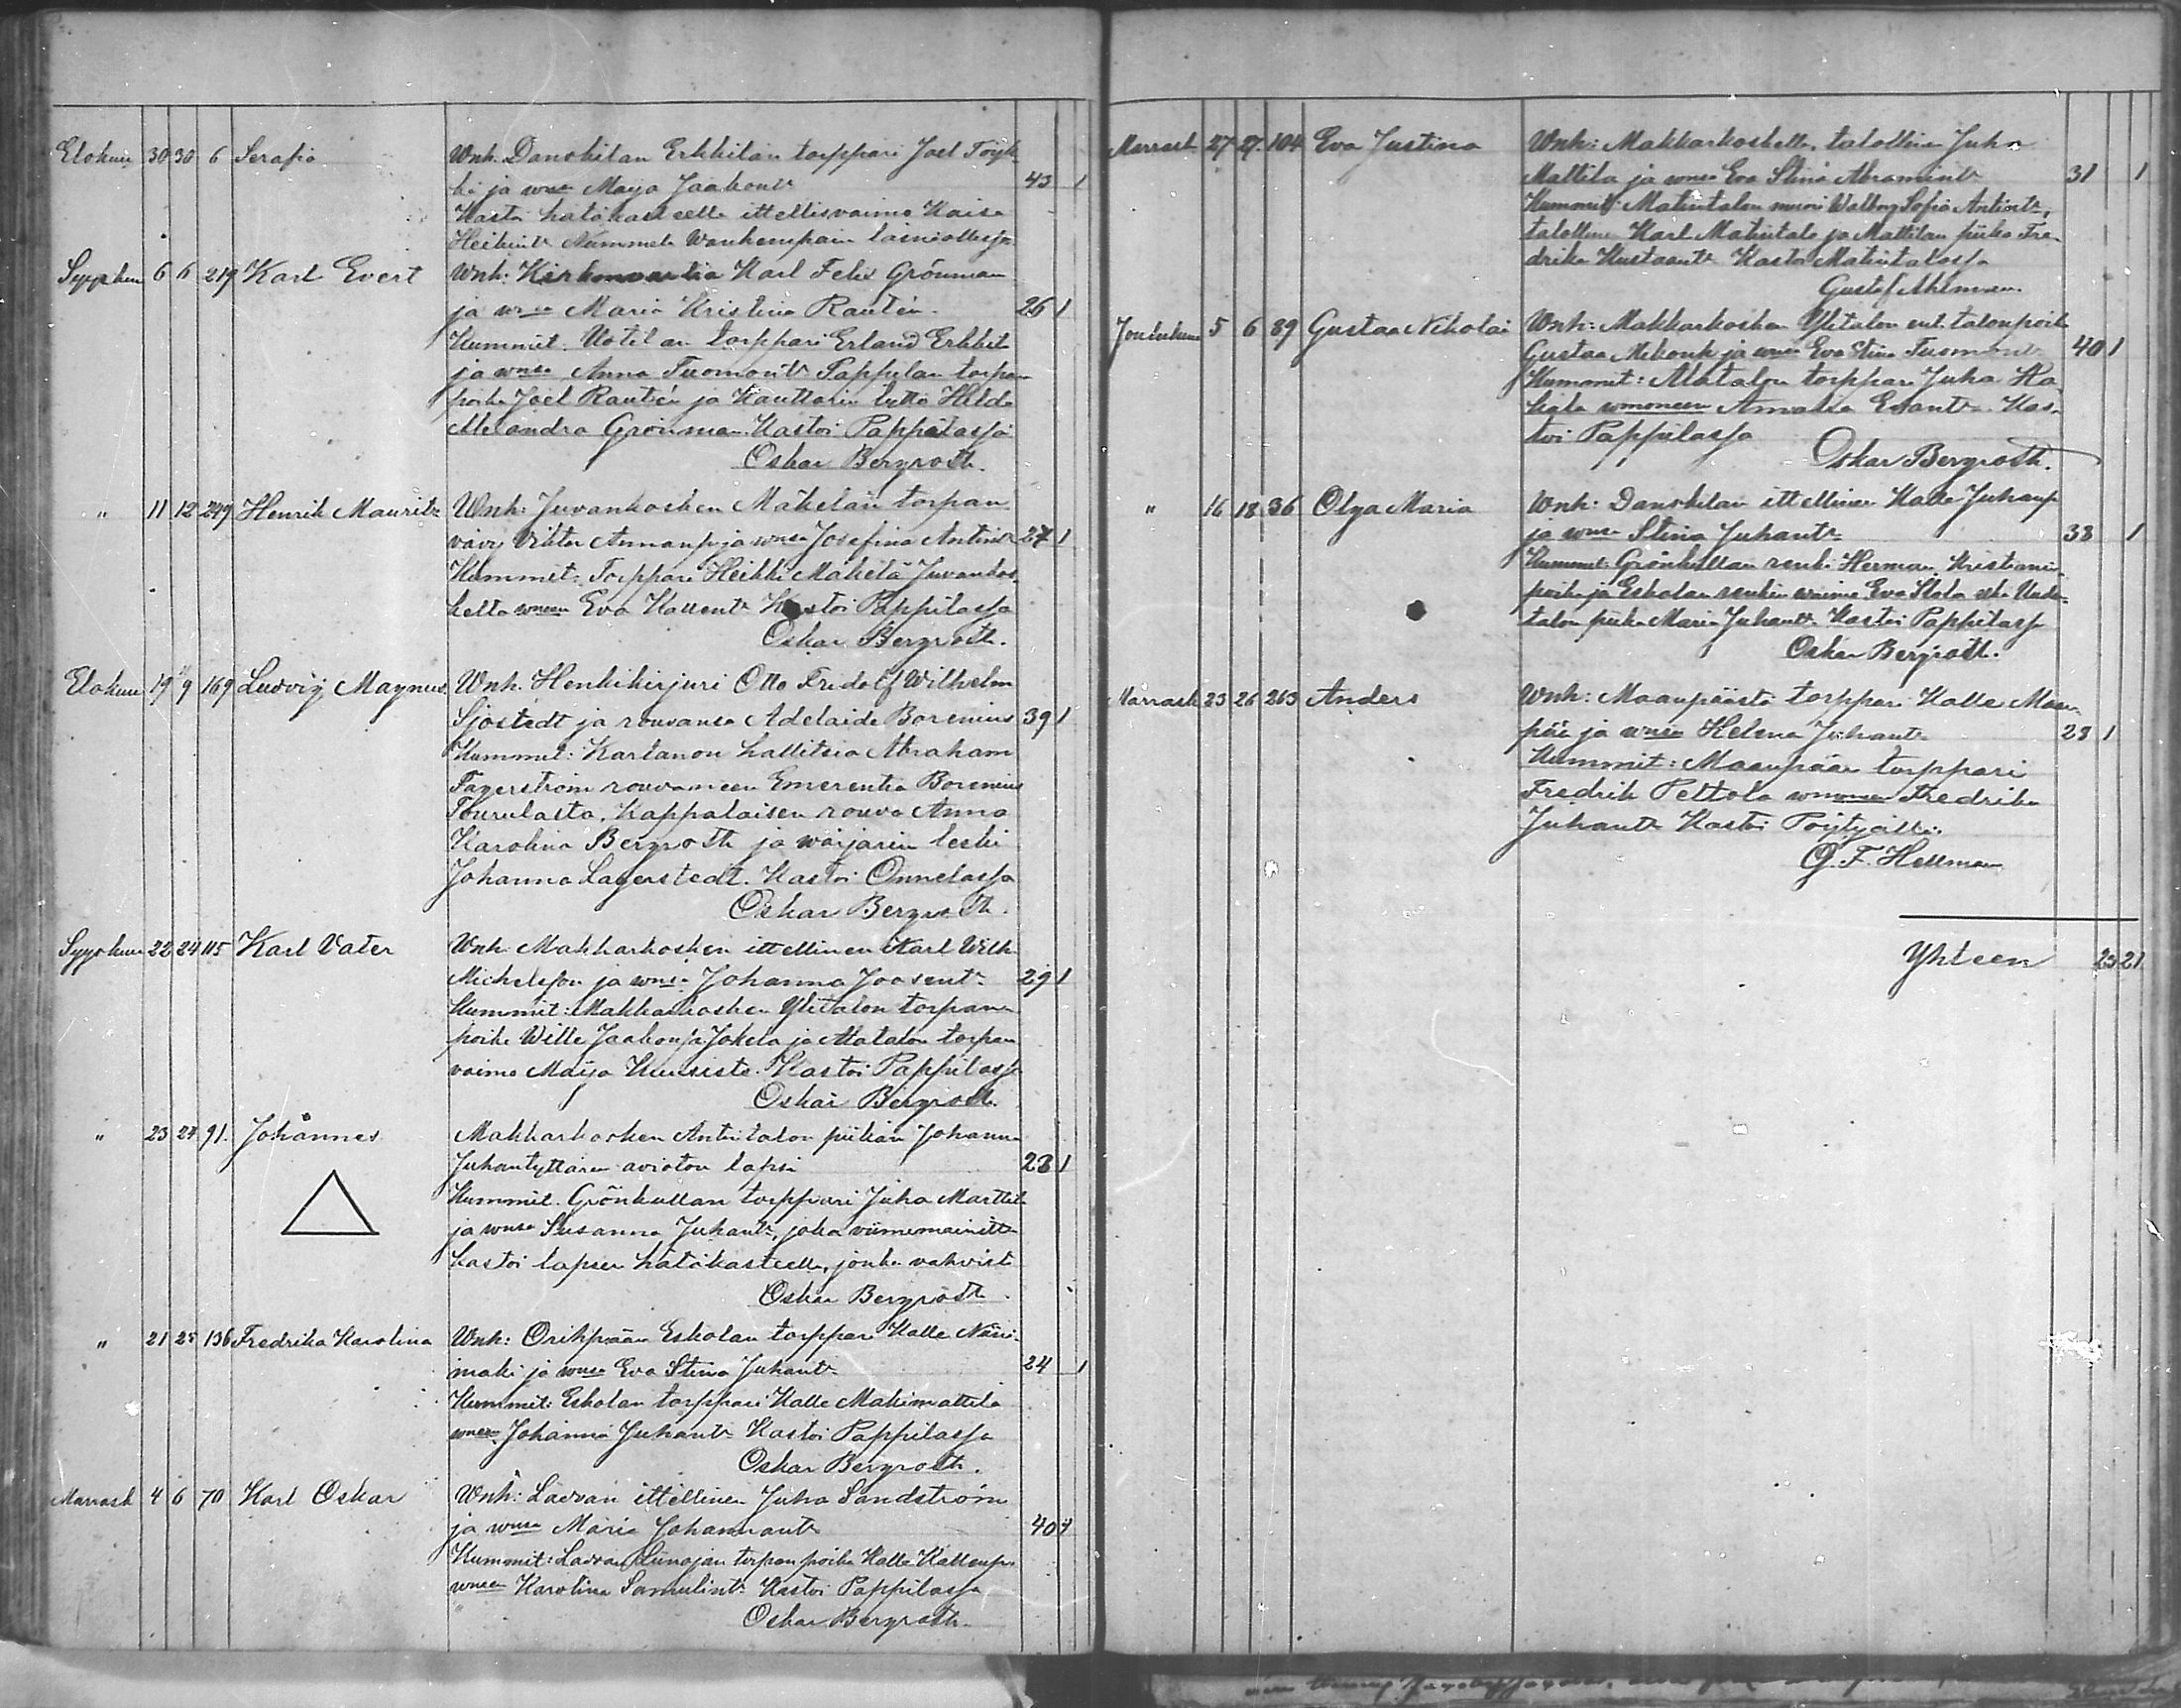 Elokuu 30 30 6 Serafia Wnh. Danskilan Erkkilän torppari Joel Töyk
ki ja wnsa Maija Jaakont. 43 1
Kastoi hätäkasteella ittellisvaimo Kaisa
Heikint. Nummela Wanhempain läsnäollessa
Syyskuu 6 6 219 Karl Evert Wnh: Kirkonvartia Karl Felix Grönman
ja wnsa Maria Kristina Rautén. 26 1
Kummit. Uotilan torppari Erland Erkkil
ja wnsa Anna Tuomont. Pappilan torpan
poika Joel Rautén ja Kanttorin tyttö Hilda
Alexandra Grönman. Kastoi Pappilassa
Oskar Bergroth.
" 11 12 249 Henrik Mauritz Wnh: Juvankosken Mäkelän torpan
vävy Viktor Annanp. ja wnsa Josefina Antint. 27 1
Kummit: Torppari Heikki Mäkelä Juvankos
kelta wneen Eva Kallent. Kastoi Pappilassa
Oskar Bergroth.
Elokuu 19 9 169 Ludvig Magnus Wnh. Henkikirjuri Otto Fridolf Wilhelm
Sjöstedt ja rouvansa Adelaide Borenius 39 1
Kummit: Kartanon hallitsia Abraham
Fagerström rouvaneen Emerentia Borenius
Tourulasta. Kappalaisen rouva Anna
Karolina Bergroth ja wärjärin leski
Johanna Lagerstedt. Kastoi Onnelassa
Oskar Bergroth.
Syyskuu 22 24 115 Karl Vater Wnh. Makkarkosken ittellinen Karl Wilh.
Michelsson ja wnsa Johanna Joosent. 29 1
Kummit: Makkarkosken Ylitalon torpan
poika Wille Jaakonp. Jokela ja Alatalon torpan
vaimo Maija Kuusisto. Kastoi Pappilassa
Oskar Bergroth.
" 23 24 91. Johannes Makkarkosken Anttitalon piikan Johanna
Juhantyttären avioton lapsi 28 1
Kummit. Grönkullan torppari Juha Marttil
ja wnsa Susanna Juhant., joka viimemainittu
kastoi lapsen hätäkasteella, jonka vahvisti
Oskar Bergroth
" 21 25 136 Fredrika Karolina Wnh: Orihpään Eskolan torppari Kalle Näsi-
mäki ja wnsa Eva Stina Juhant. 24 1
Kummit: Eskolan torppari Kalle Mäkimattila
wneen Johanna Juhant. Kastoi Pappilassa
Oskar Bergroth.
Marrask 4 6 70 Karl Oskar Wnh: Lavran ittellinen Juha Sandström
ja wnsa Maria Johannant. 40 1
Kummit: Lavran torpan poika Kalle Kallenp.
wneen Karolina Samulint. Kastoi Pappilassa
Oskar Bergroth.
Marrask 27 27. 104 Eva Justina Wnh: Makkarkoskella, talollinen Juha
Mattila ja wnsa Eva Stina Abramint. 31 1
Kummit: Matintalon muori Walborg Sofia Antint.,
talollinen Karl Matintalo ja Mattilan piika Fre-
drika Kustaant. Kastoi Matintalossa
Gustaf Ahlman.
Joulukuu 5 6 89 Gustaa Nikolai Wnh: Makkarkosken Ylitalon ent. talonpoik
Gustaa Mikonp. ja wnsa Eva Stina Tuomont. 40 1
Kummit: Alatalon torppari Juha Ha
kala wmoneen Amalia Erlant. Kas-
toi Pappilassa
Oskar Bergroth.
" 16 18 36 Olga Maria Wnh: Danskilan ittellinen Kalle Juhanp
ja wnsa Stina Juhant. 38 1
Kummit: Grönkullan renki Herman Kristianin
poika ja Eskolan renkin waimo Eva Stola eli Uuden
talon piika Maria Juhant. Kastoi Pappilassa
Oskar Bergroth.
Marrask 23 26 263 Anders Wnh: Maanpäästä torppari Kalle Maan
pää ja wnsa Helena Juhant. 28 1
Kummit: Maanpään torppari
Fredrik Peltola wmoneen Fredrika
Juhant. Kastoi Pöytyällä.
G. F. Hellman
Yhteen 23 21